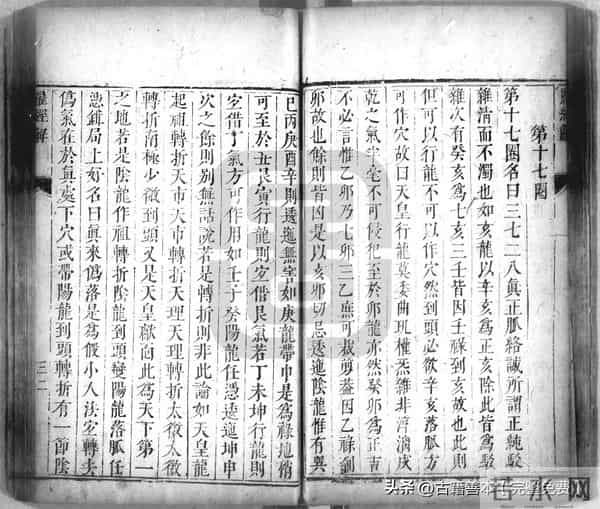 第十七圈
第十七圈名曰三七二八眞正脈絡誠所謂正純駁
雜淸而不濁也如亥龍以辛亥爲正亥除此皆爲駁
雜次有癸亥爲七亥三壬皆因壬祿到亥故也此則
但可以行龍不可以作穴然到頭必欲辛亥落脈方
可作穴故曰天皇行龍莫委曲現權炁雜非淸滴成
乾之氣半毫不可侵犯至於卯龍亦然聚卯爲正吉
不必言惟乙卯乃七卯三乙庶可裁剪蓋因乙祿
卯故也餘則皆凶是以亥卯切忌逶迤陰龍惟有巽
巳丙庚酉辛則逶迤無害如庚龍帶申是爲祿地稍
可至於丑艮寅行龍則安借艮氣若丁未坤行龍則
安借丁氣方可作用如壬子癸陽龍任憑逶迤坤申
次之餘則別無話說若是轉折則非此論如天皇龍
起祖轉折天市天市轉折天理天理轉折太微太微
轉折南極少微到頭又是天皇獻向此爲天下第一
之地若是陰龍作祖轉折陰龍到頭變陽龍落脈任
憑鋪局上好名曰眞來僞落是爲假小人法安轉去
僞氣在於眞處下穴或帶陽龍到頭轉折有一節陰
羅經解
三二
头条@古籍善本(完整免费)